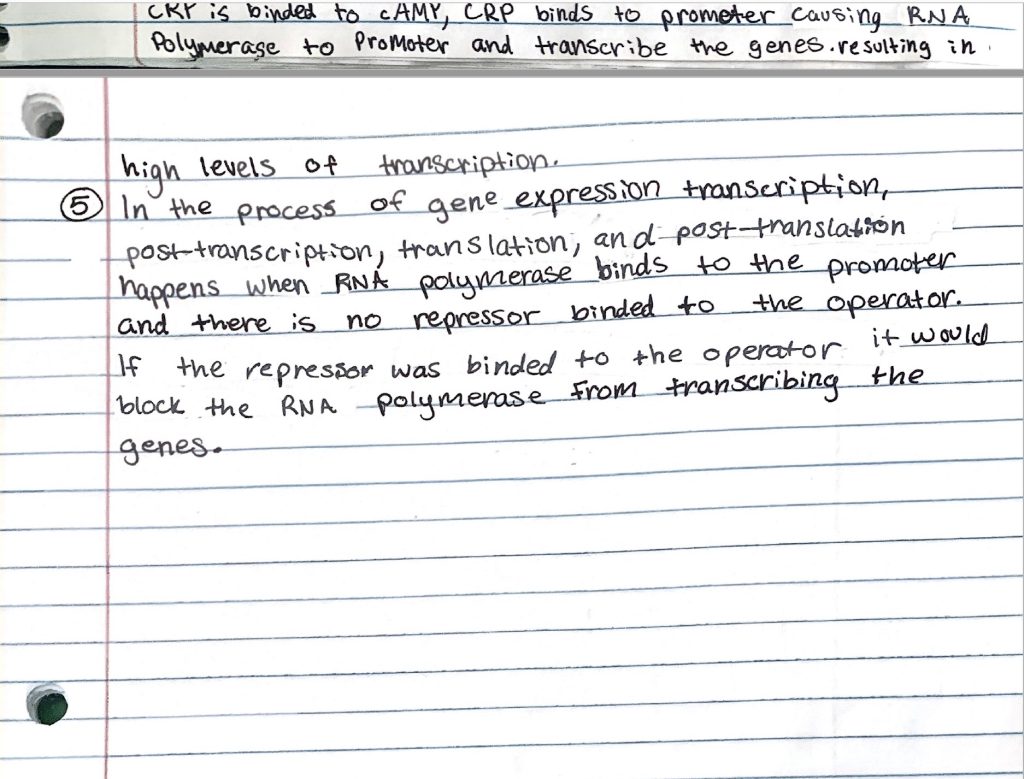 CRP is binded to cAMP, CRP binds to promoter causing RNA
Polymerase to Promoter and transcribe the genes. resulting in
high levels of transcription.
5 In the process of gene expression transcription,
post-transcription, translation, and post-translation
happens when RNA polymerase binds to the promoter
and there is no repressor binded to the operator.
If the repressor was binded to the operator it would
block the RNA polymerase from transcribing the
genes.